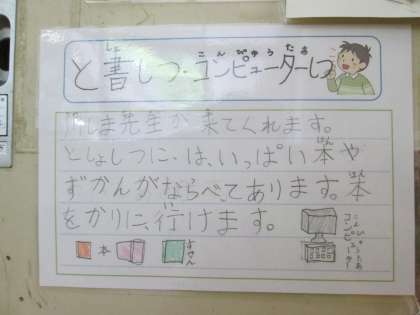 しょ
と書しつ・コンピューターしつ
こんぴゅうたあ
しま先生が来てくれます。
としょしつに・は、いっぱい本や
ほん
ずかんがならべてあります。本
ほん
をかりに、行けます。
い
本
コンピューター
こんぴゅうたあ